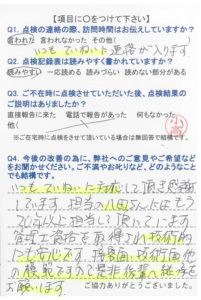 【項目に○をつけて下さい】
Q1. 点検の連絡の際、訪問時間はお伝えしていますか？
言われた 言われなかった その他(
いつもていねいに連絡が入ります
Q2. 点検記録表は読みやすく書かれていますか？
読みやすい 一応読める 読みづらい 読めない部分がある
Q3. ご不在時に点検させていただいた後、点検結果の
ご説明はありましたか？
直接報告に来た 電話で報告があった 何もなかった
※ご在宅時に点検をさせて頂いている場合は無回答で結構です。
Q4. 今後の改善の為に、弊社へのご意見やご希望など
をお聞かせください。ご不満やお叱りなど、どのようなこと
でも結構です。
いつもていねいに対応して頂き感謝
しています。担当の八田さんにはもう
20年以上担当して頂いています
管理士資格を取得され技術的
にも安心です。接客面、技術面他
の模範ですので是非後輩へ継承を
お願いします。
ご協力ありがとうございました。